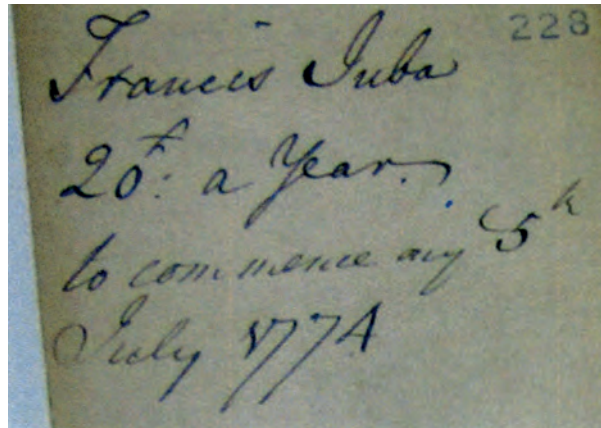 228
Francis Juba
20£: a Year.
to commence 5h
July 1774